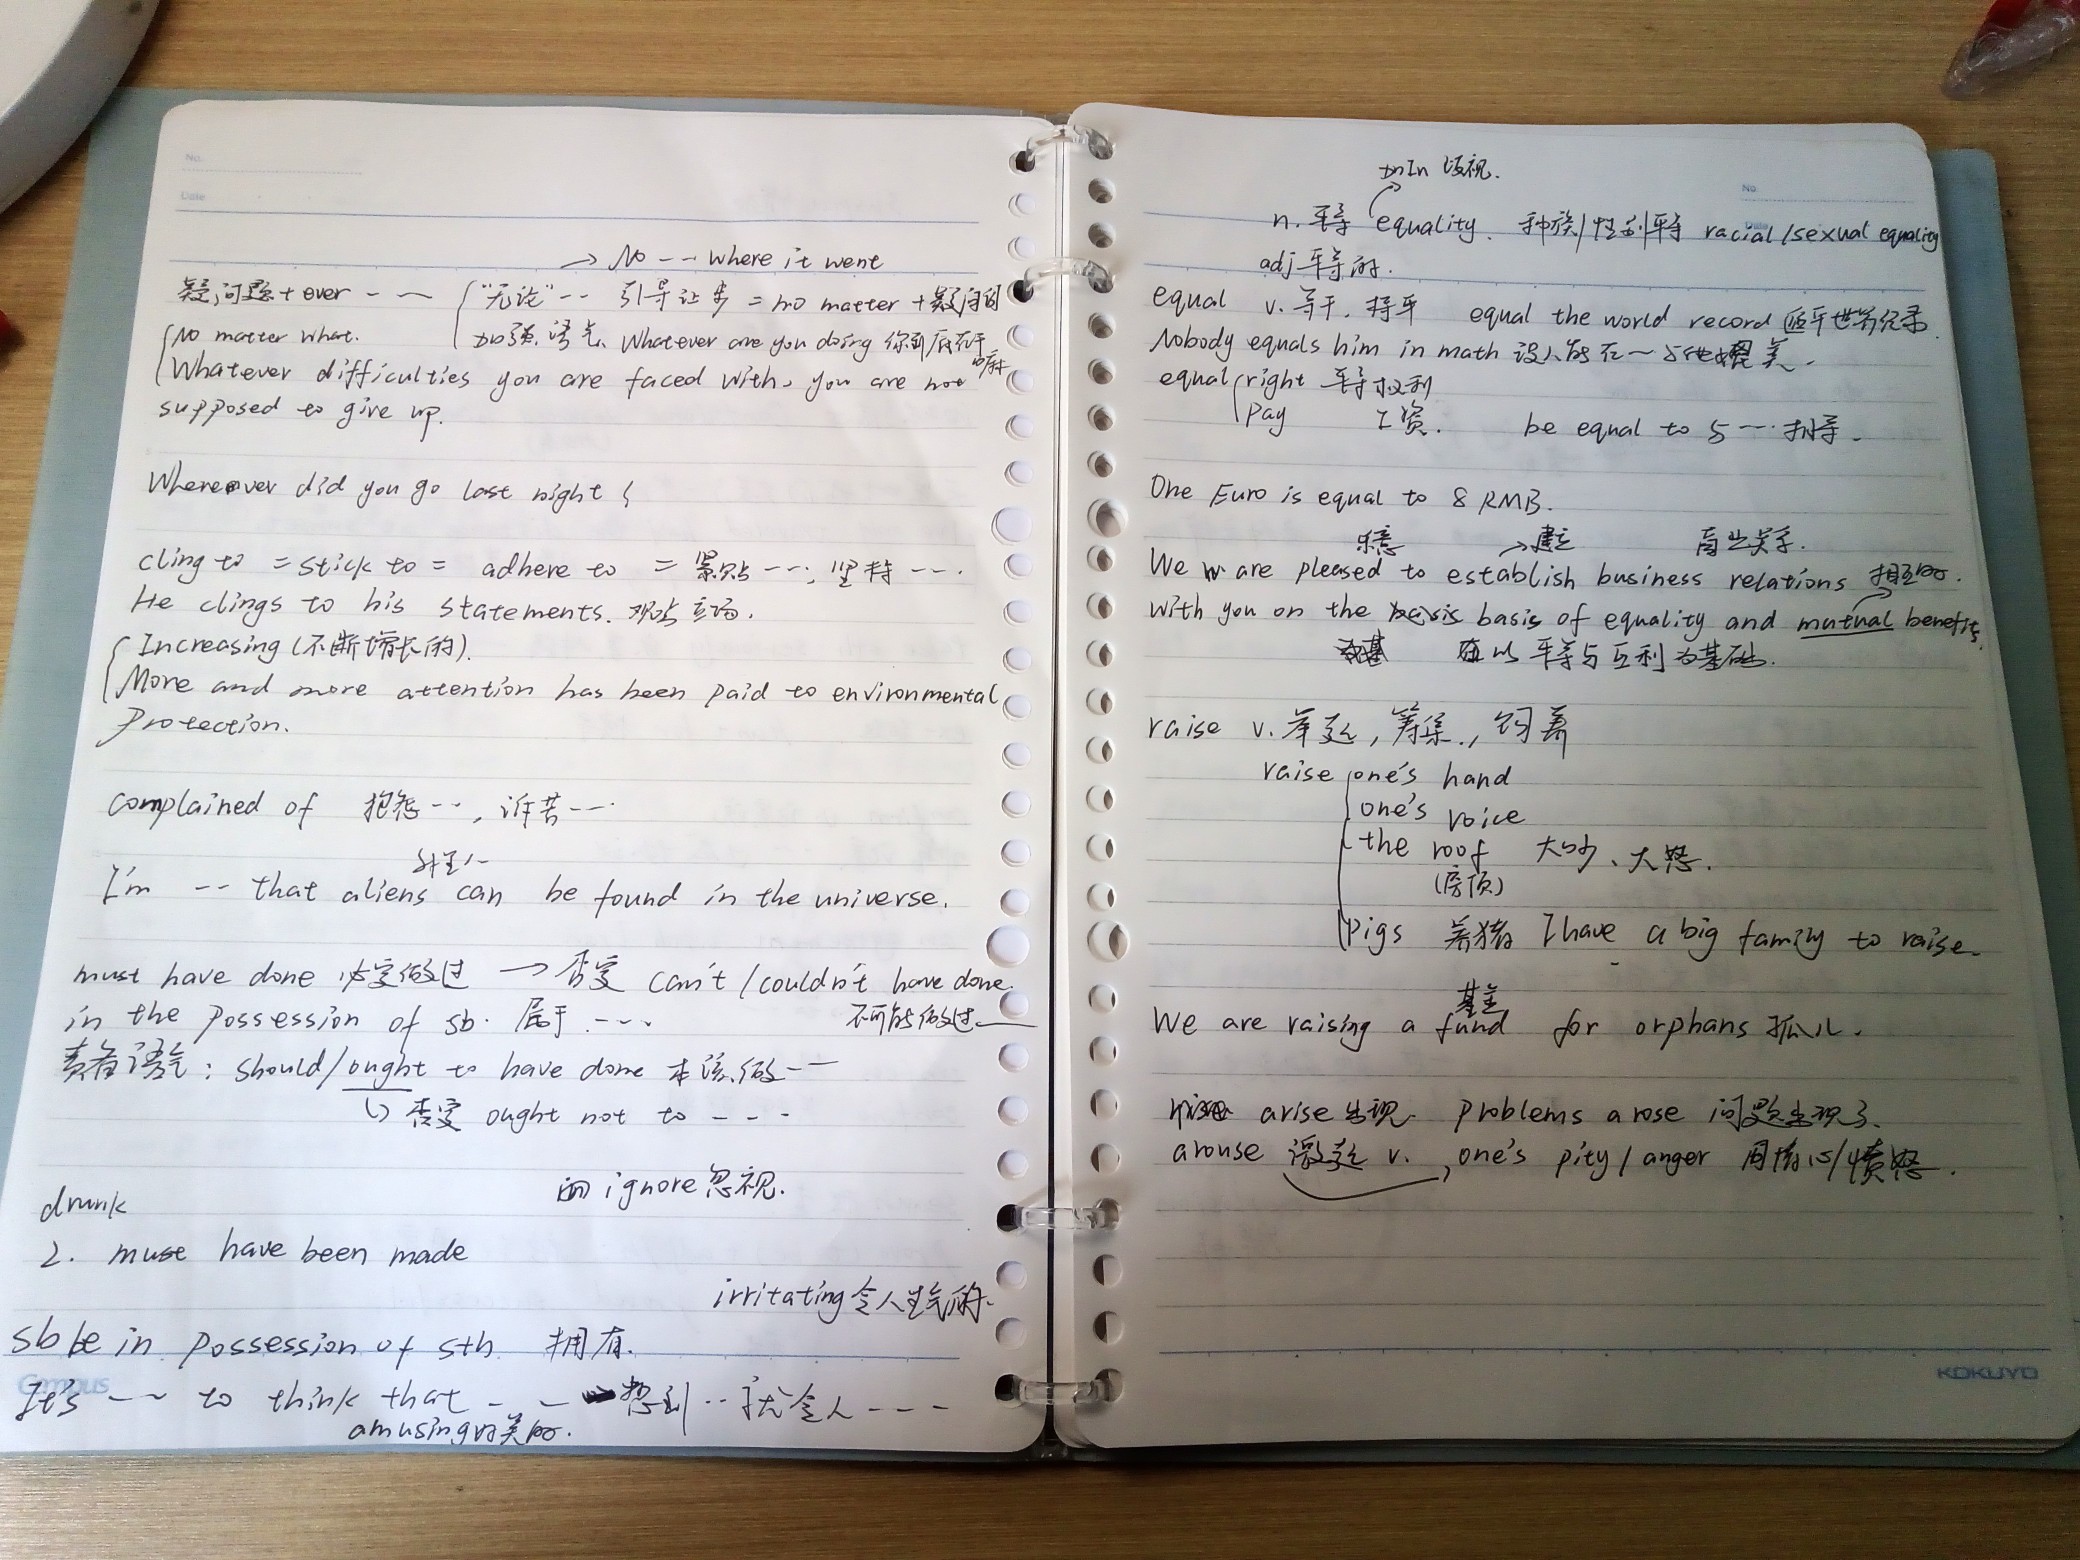 No.
Date
→ No --- where it went
疑问题 + ever --- { "无论" -- 引导让步 = no matter + 疑问词
{ No matter what. 加强语气 Whatever are you doing 你到底在干嘛
Whatever difficulties you are faced with, you are not
supposed to give up.
Whereever did you go last night
cling to = stick to = adhere to = 紧贴 ---, 坚持 ---.
He clings to his statements. 观点立场.
{ Increasing (不断增长的).
More and more attention has been paid to environmental
Protection.
complained of 抱怨 --, 诉苦 ---
外星人
I'm -- that aliens can be found in the universe.
must have done 必定做过 → 否定 can't / couldn't have done.
in the possession of sb. 属于 ---. 不可能做过.
责备语气: should / ought to have done 本该做 --
↳ 否定 ought not to ---
ignore 忽视.
drunk
2. must have been made
irritating 令人生气的.
sb be in possession of sth 拥有.
Campus
It's --- to think that -- 想到 -- 就令人 ---
amusing 好笑的.
加In 歧视.
No
n. 平等 equality. 种族/性别平等 racial / sexual equality
adj 平等的.
equal v. 等于, 持平 equal the world record 追平世界纪录.
Nobody equals him in math 没人能在 -- 与他媲美.
equal { right 平等权利
pay 工资. be equal to 与 --- 相等.
One Euro is equal to 8 RMB.
乐意 → 建立 商业关系.
We are pleased to establish business relations 相互的.
with you on the basis of equality and mutual benefits.
在以平等与互利为基础.
raise v. 举起, 筹集, 饲养
raise { one's hand
one's voice
the roof 大吵、大怒.
(房顶)
pigs 养猪 I have a big family to raise.
基金
We are raising a fund for orphans 孤儿.
arise 出现. problems arose 问题出现了.
arouse 激起 v. one's pity / anger 同情心/愤怒.
KOKUYO